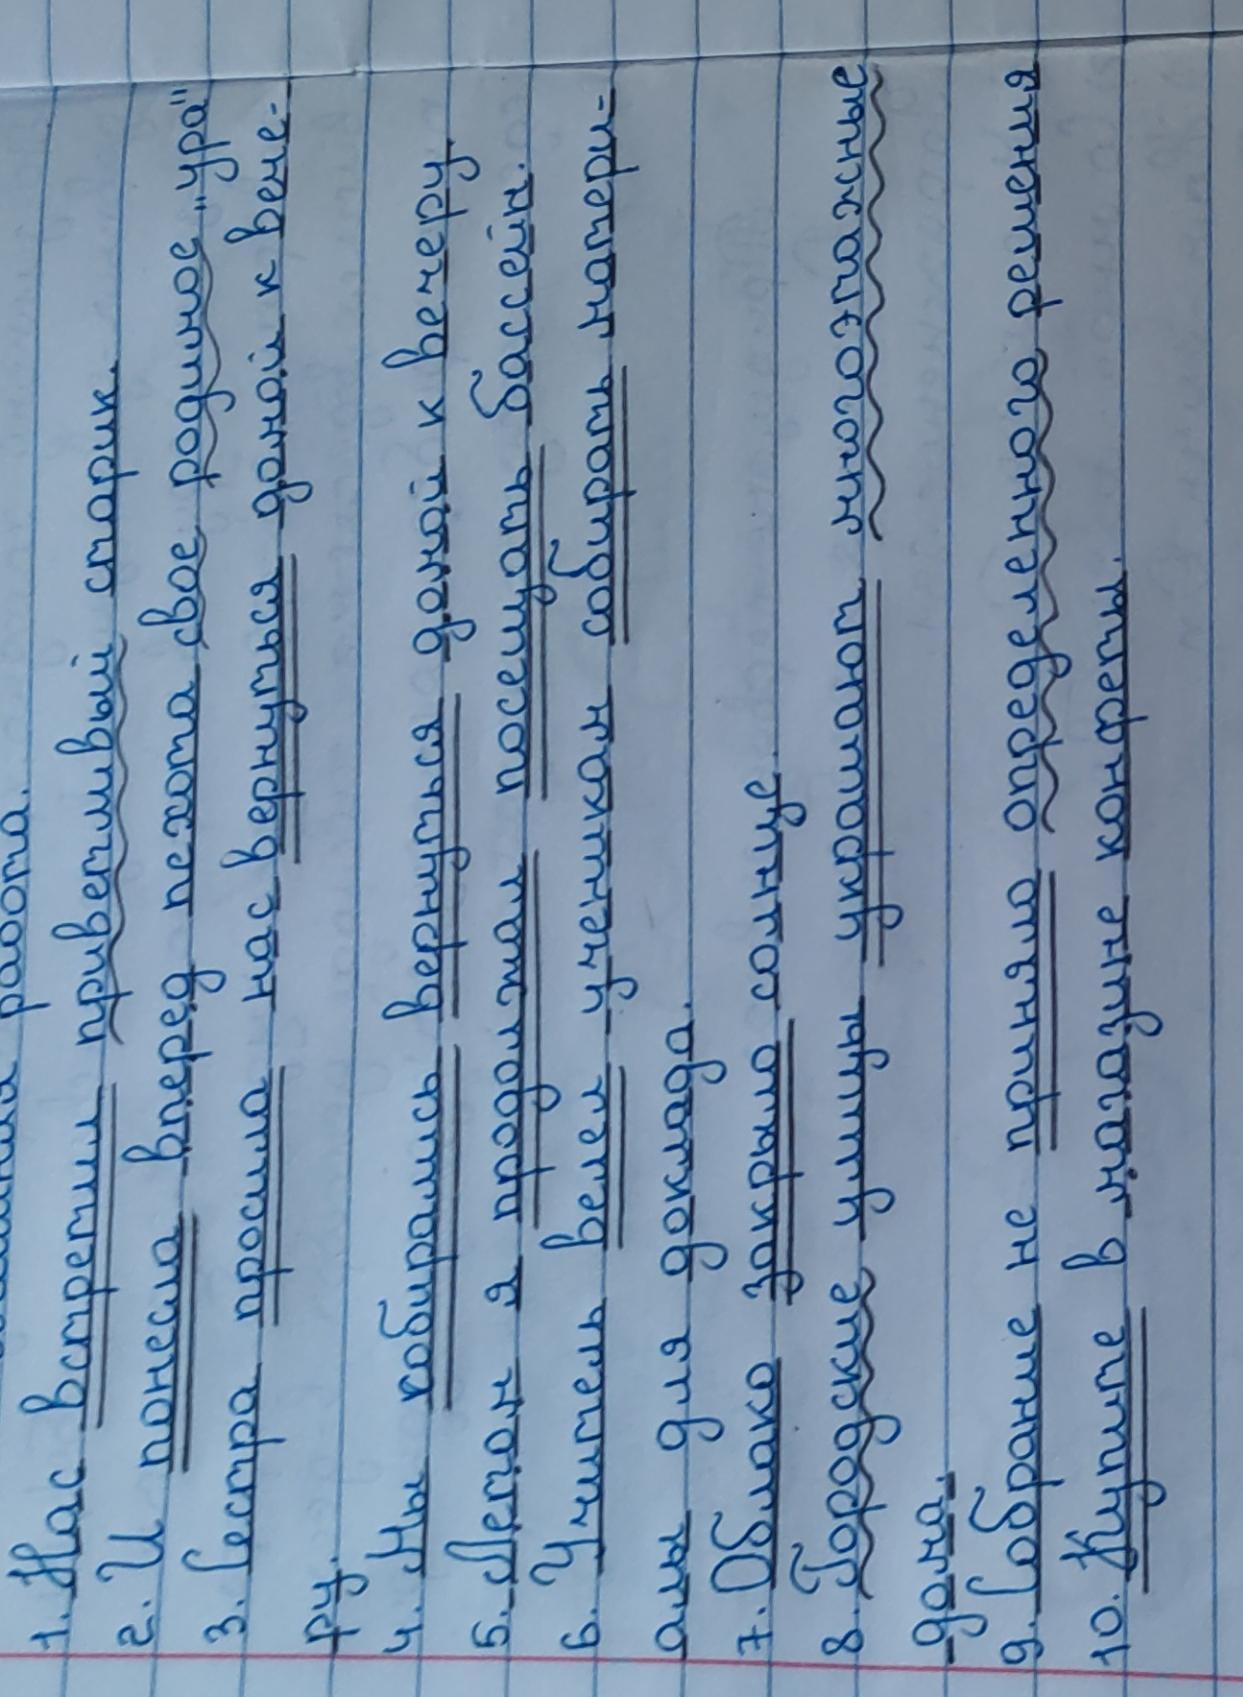 работа.
1. Нас встретил приветливый старик.
2. И понесла вперед пехота свое родимое „ура"
3. Сестра просила нас вернуться домой к вече-
ру.
4. Мы собирались вернуться домой к вечеру.
5. Летом я продолжал посещать бассейн.
6. Учитель велел ученикам собирать матери-
алы для доклада.
7. Облако закрыло солнце.
8. Городские улицы украшают многоэтажные
дома.
9. Собрание не приняло определенного решения
10. Купите в магазине конфеты.